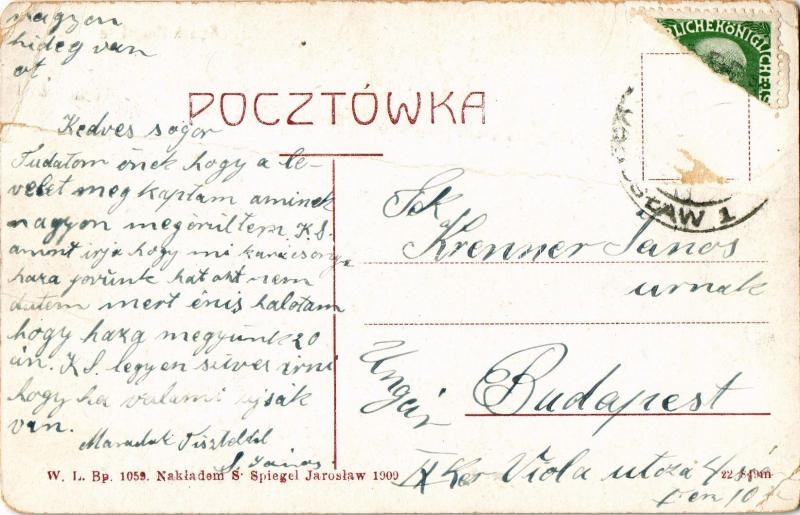 nagyon
hideg van
ot.
POCZTÓWKA
Kedves sogor
Tudatom önek hogy a le-
velet meg kaptam aminek
nagyon megörültem K.S.
amint irja hogy mi karácsonyra
haza jovünk hat azt nem
tutem mert énis halotam
hogy haza megyünk 20
án. K S. legyen süves irni
hogy ha valami ujsák
van.
Maradok Tisztelttel
S. János
KÖNIGLICHE
SŁAW 1
Krenner Janos
urnak
Ungár
Budapest
IX Ker Viola utcza 4 sz
W. L. Bp. 1059. Nakładem S. Spiegel Jarosław 1909